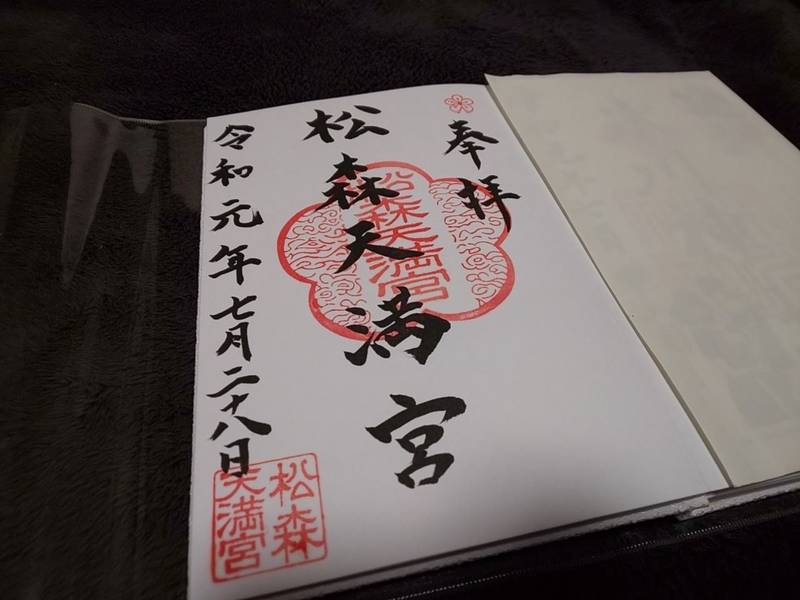 奉拝
松森天満宮
松森天満宮
令和元年七月二十八日
松森
天満宮